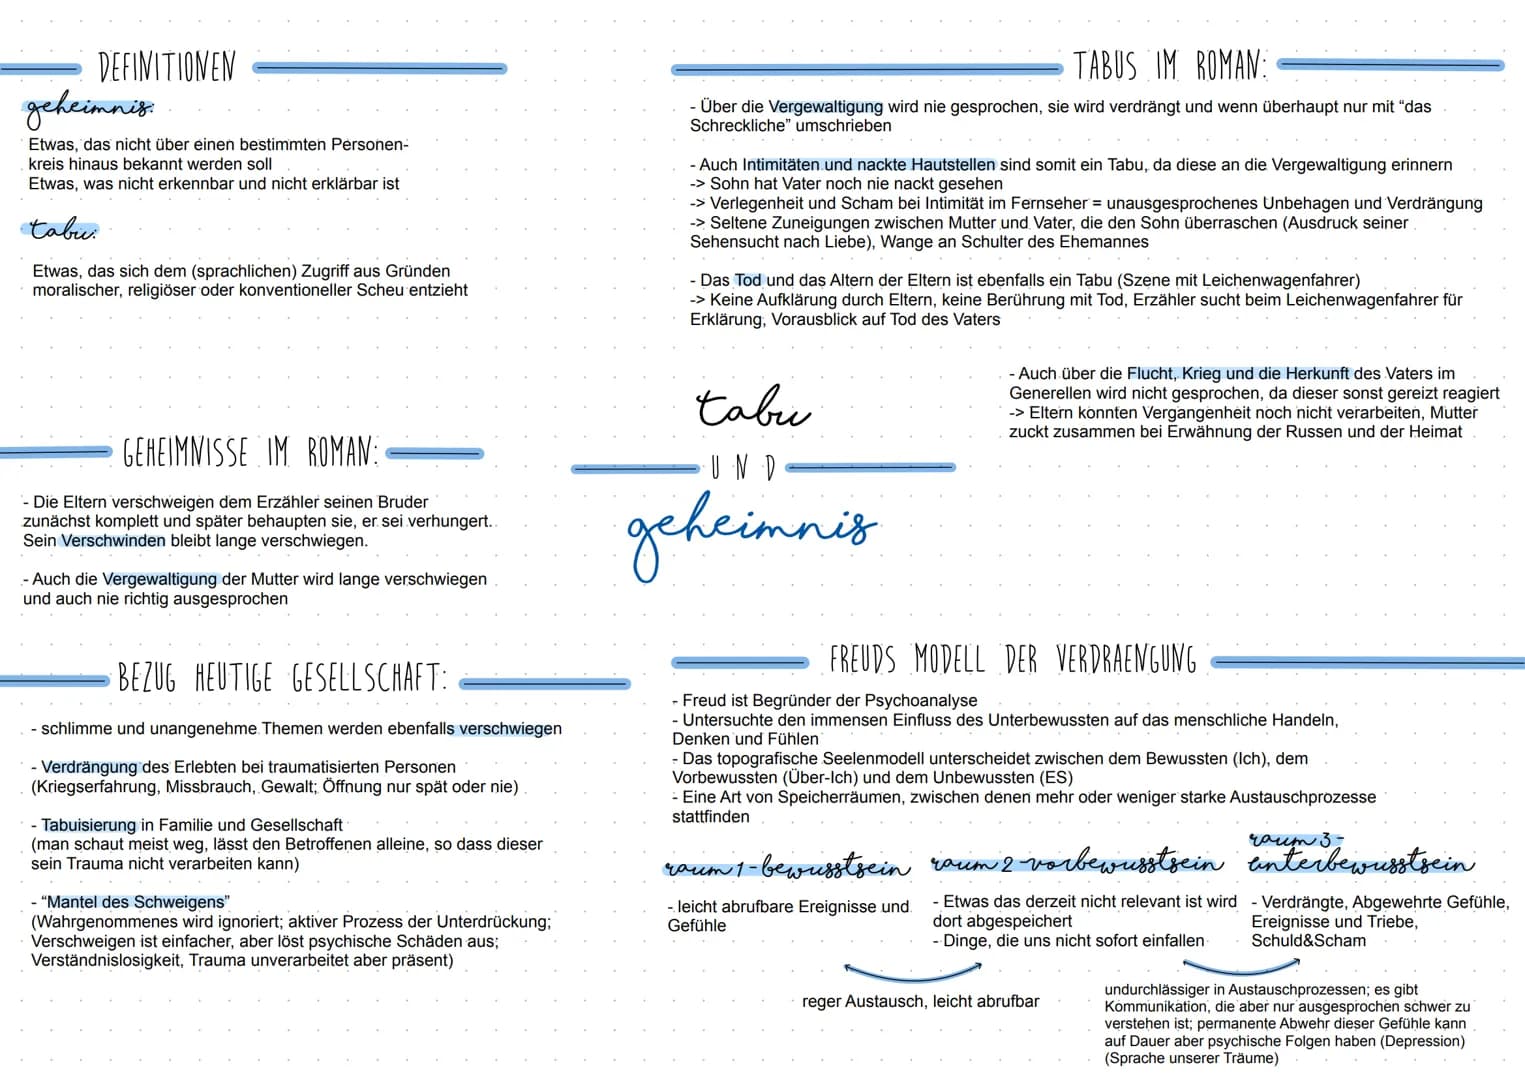 DEFINITIONEN
geheimnis:
Etwas, das nicht über einen bestimmten Personen-
kreis hinaus bekannt werden soll
Etwas, was nicht erkennbar und nicht erklärbar ist
tabu:
Etwas, das sich dem (sprachlichen) Zugriff aus Gründen
moralischer, religiöser oder konventioneller Scheu entzieht
GEHEIMNISSE IM ROMAN:
- Die Eltern verschweigen dem Erzähler seinen Bruder
zunächst komplett und später behaupten sie, er sei verhungert.
Sein Verschwinden bleibt lange verschwiegen.
- Auch die Vergewaltigung der Mutter wird lange verschwiegen
und auch nie richtig ausgesprochen
BEZUG HEUTIGE GESELLSCHAFT:
- schlimme und unangenehme Themen werden ebenfalls verschwiegen
- Verdrängung des Erlebten bei traumatisierten Personen
(Kriegserfahrung, Missbrauch, Gewalt; Öffnung nur spät oder nie)
- Tabuisierung in Familie und Gesellschaft
(man schaut meist weg, lässt den Betroffenen alleine, so dass dieser
sein Trauma nicht verarbeiten kann)
- "Mantel des Schweigens"
(Wahrgenommenes wird ignoriert; aktiver Prozess der Unterdrückung;
Verschweigen ist einfacher, aber löst psychische Schäden aus;
Verständnislosigkeit, Trauma unverarbeitet aber präsent)
tabu
UND
geheimnis
TABUS IM ROMAN:
- Über die Vergewaltigung wird nie gesprochen, sie wird verdrängt und wenn überhaupt nur mit "das
Schreckliche" umschrieben
- Auch Intimitäten und nackte Hautstellen sind somit ein Tabu, da diese an die Vergewaltigung erinnern
-> Sohn hat Vater noch nie nackt gesehen
-> Verlegenheit und Scham bei Intimität im Fernseher = unausgesprochenes Unbehagen und Verdrängung
-> Seltene Zuneigungen zwischen Mutter und Vater, die den Sohn überraschen (Ausdruck seiner
Sehensucht nach Liebe), Wange an Schulter des Ehemannes
- Das Tod und das Altern der Eltern ist ebenfalls ein Tabu (Szene mit Leichenwagenfahrer)
-> Keine Aufklärung durch Eltern, keine Berührung mit Tod, Erzähler sucht beim Leichenwagenfahrer für
Erklärung, Vorausblick auf Tod des Vaters
- Auch über die Flucht, Krieg und die Herkunft des Vaters im
Generellen wird nicht gesprochen, da dieser sonst gereizt reagiert
-> Eltern konnten Vergangenheit noch nicht verarbeiten, Mutter
zuckt zusammen bei Erwähnung der Russen und der Heimat
FREUDS MODELL DER VERDRAENGUNG
- Freud ist Begründer der Psychoanalyse
- Untersuchte den immensen Einfluss des Unterbewussten auf das menschliche Handeln,
Denken und Fühlen
- Das topografische Seelenmodell unterscheidet zwischen dem Bewussten (Ich), dem
Vorbewussten (Über-Ich) und dem Unbewussten (ES)
- Eine Art von Speicherräumen, zwischen denen mehr oder weniger starke Austauschprozesse
stattfinden
raum 1-bewusstsein
- leicht abrufbare Ereignisse und
Gefühle
raum 2-vorbewusstsein
- Etwas das derzeit nicht relevant ist wird
dort abgespeichert
- Dinge, die uns nicht sofort einfallen
raum 3-
unterbewusstsein
- Verdrängte, Abgewehrte Gefühle,
Ereignisse und Triebe,
Schuld&Scham
reger Austausch, leicht abrufbar
undurchlässiger in Austauschprozessen; es gibt
Kommunikation, die aber nur ausgesprochen schwer zu
verstehen ist; permanente Abwehr dieser Gefühle kann
auf Dauer aber psychische Folgen haben (Depression)
(Sprache unserer Träume)